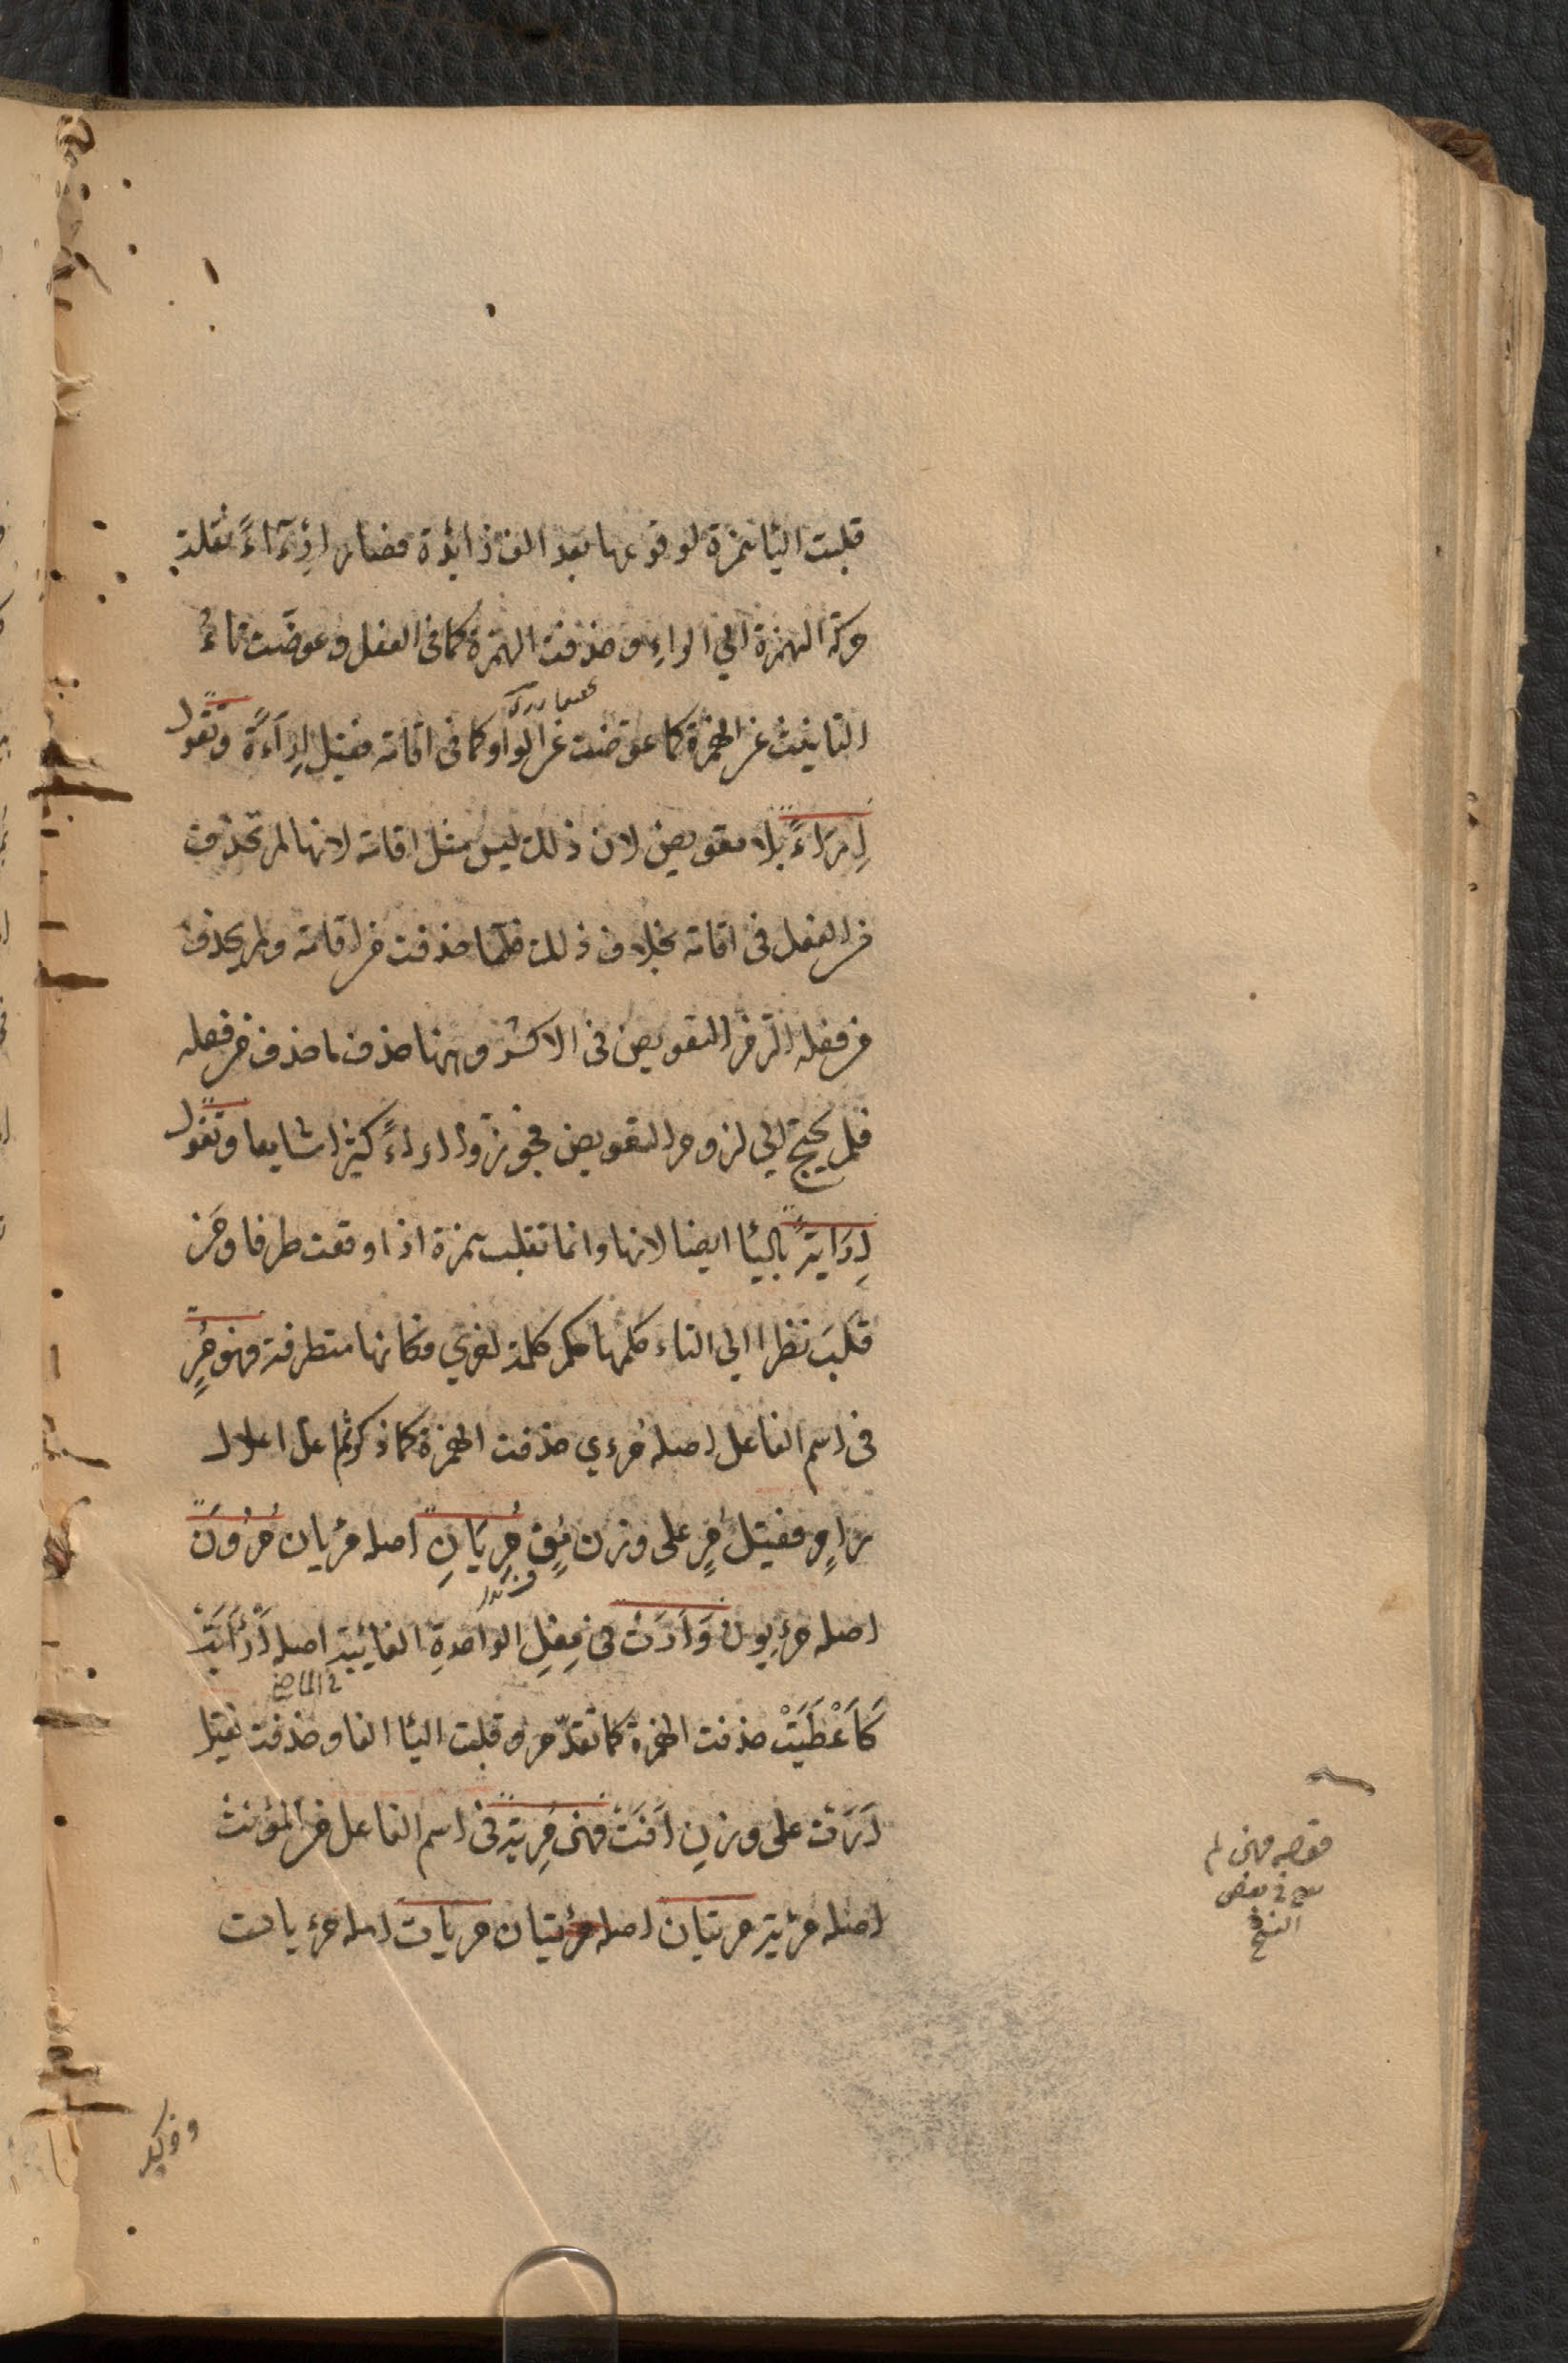 قلبت اليا همزة لوقوعها بعد الف زايدة فصار ارءاءً نقلت
حركة الهمزة الي الراءِ و حذفت الهمزة كما في الفعل و عوضّت تاءُ
التانيث عن الهمزة كما عوّضت عن الواو كما في اقامة فقيل اِرَاءَةً وَتقول
اِرَاءً بلا تعويض لان ذلك ليس مثل اقامة لانها لم تحذف
من الفعل في اقامة بخلاف ذلك فلما حذفت من اقامة ولم يحذف
من فعله الزم التعويض في الاكثر و ههنا حذف ما حذف من فعله
فلم يحتج الي لزوم التعويض فجوّز وا اراءً كثيرا شايعا و تقول
اِرَايَةً باليا ايضا لانها وانما تقلب همزة اذا وقعت طرفا ومَن
قلَبَ نظرا الي التاء حكمها حكم كلمة اخري فكانها متطرفة فهو مُرٍ
في اسم الفاعل اصله مُرءي حذفت الهمزة كما ذكر ثم اعل اعلال
رامٍ فقيل مُرٍ على وزن مُفٍ مُرِيَانِ اصله مرئيان مُرُونَ
اصله مرءِيون وَاَرَتْ في فِعْلِ الواحدةِ الغائبة اصله اَرْأَيَتْ
كَاَعْطَيَتْ حذفت الهمزة كما تقدّم و قلبت اليا الفا و حذفت فقيل
اَرَتْ على وزنِ اَفَتْ فهي مُرِيَة في اسم الفاعل من المؤنث
اصله مرئية مريتان اصله مرئيتان مريات اصله مرءيات
فهي لم
في بعض
النسخ